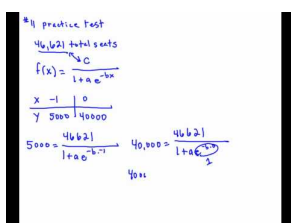 #11 practice test
46,621 total seats
f(x) = C / (1 + a e^(-bx))
x -1 | 0
y 5000 | 40000
5000 = 46621 / (1 + a e^(-b·-1))   40,000 = 46621 / (1 + a e^(-b·0))
1
4000